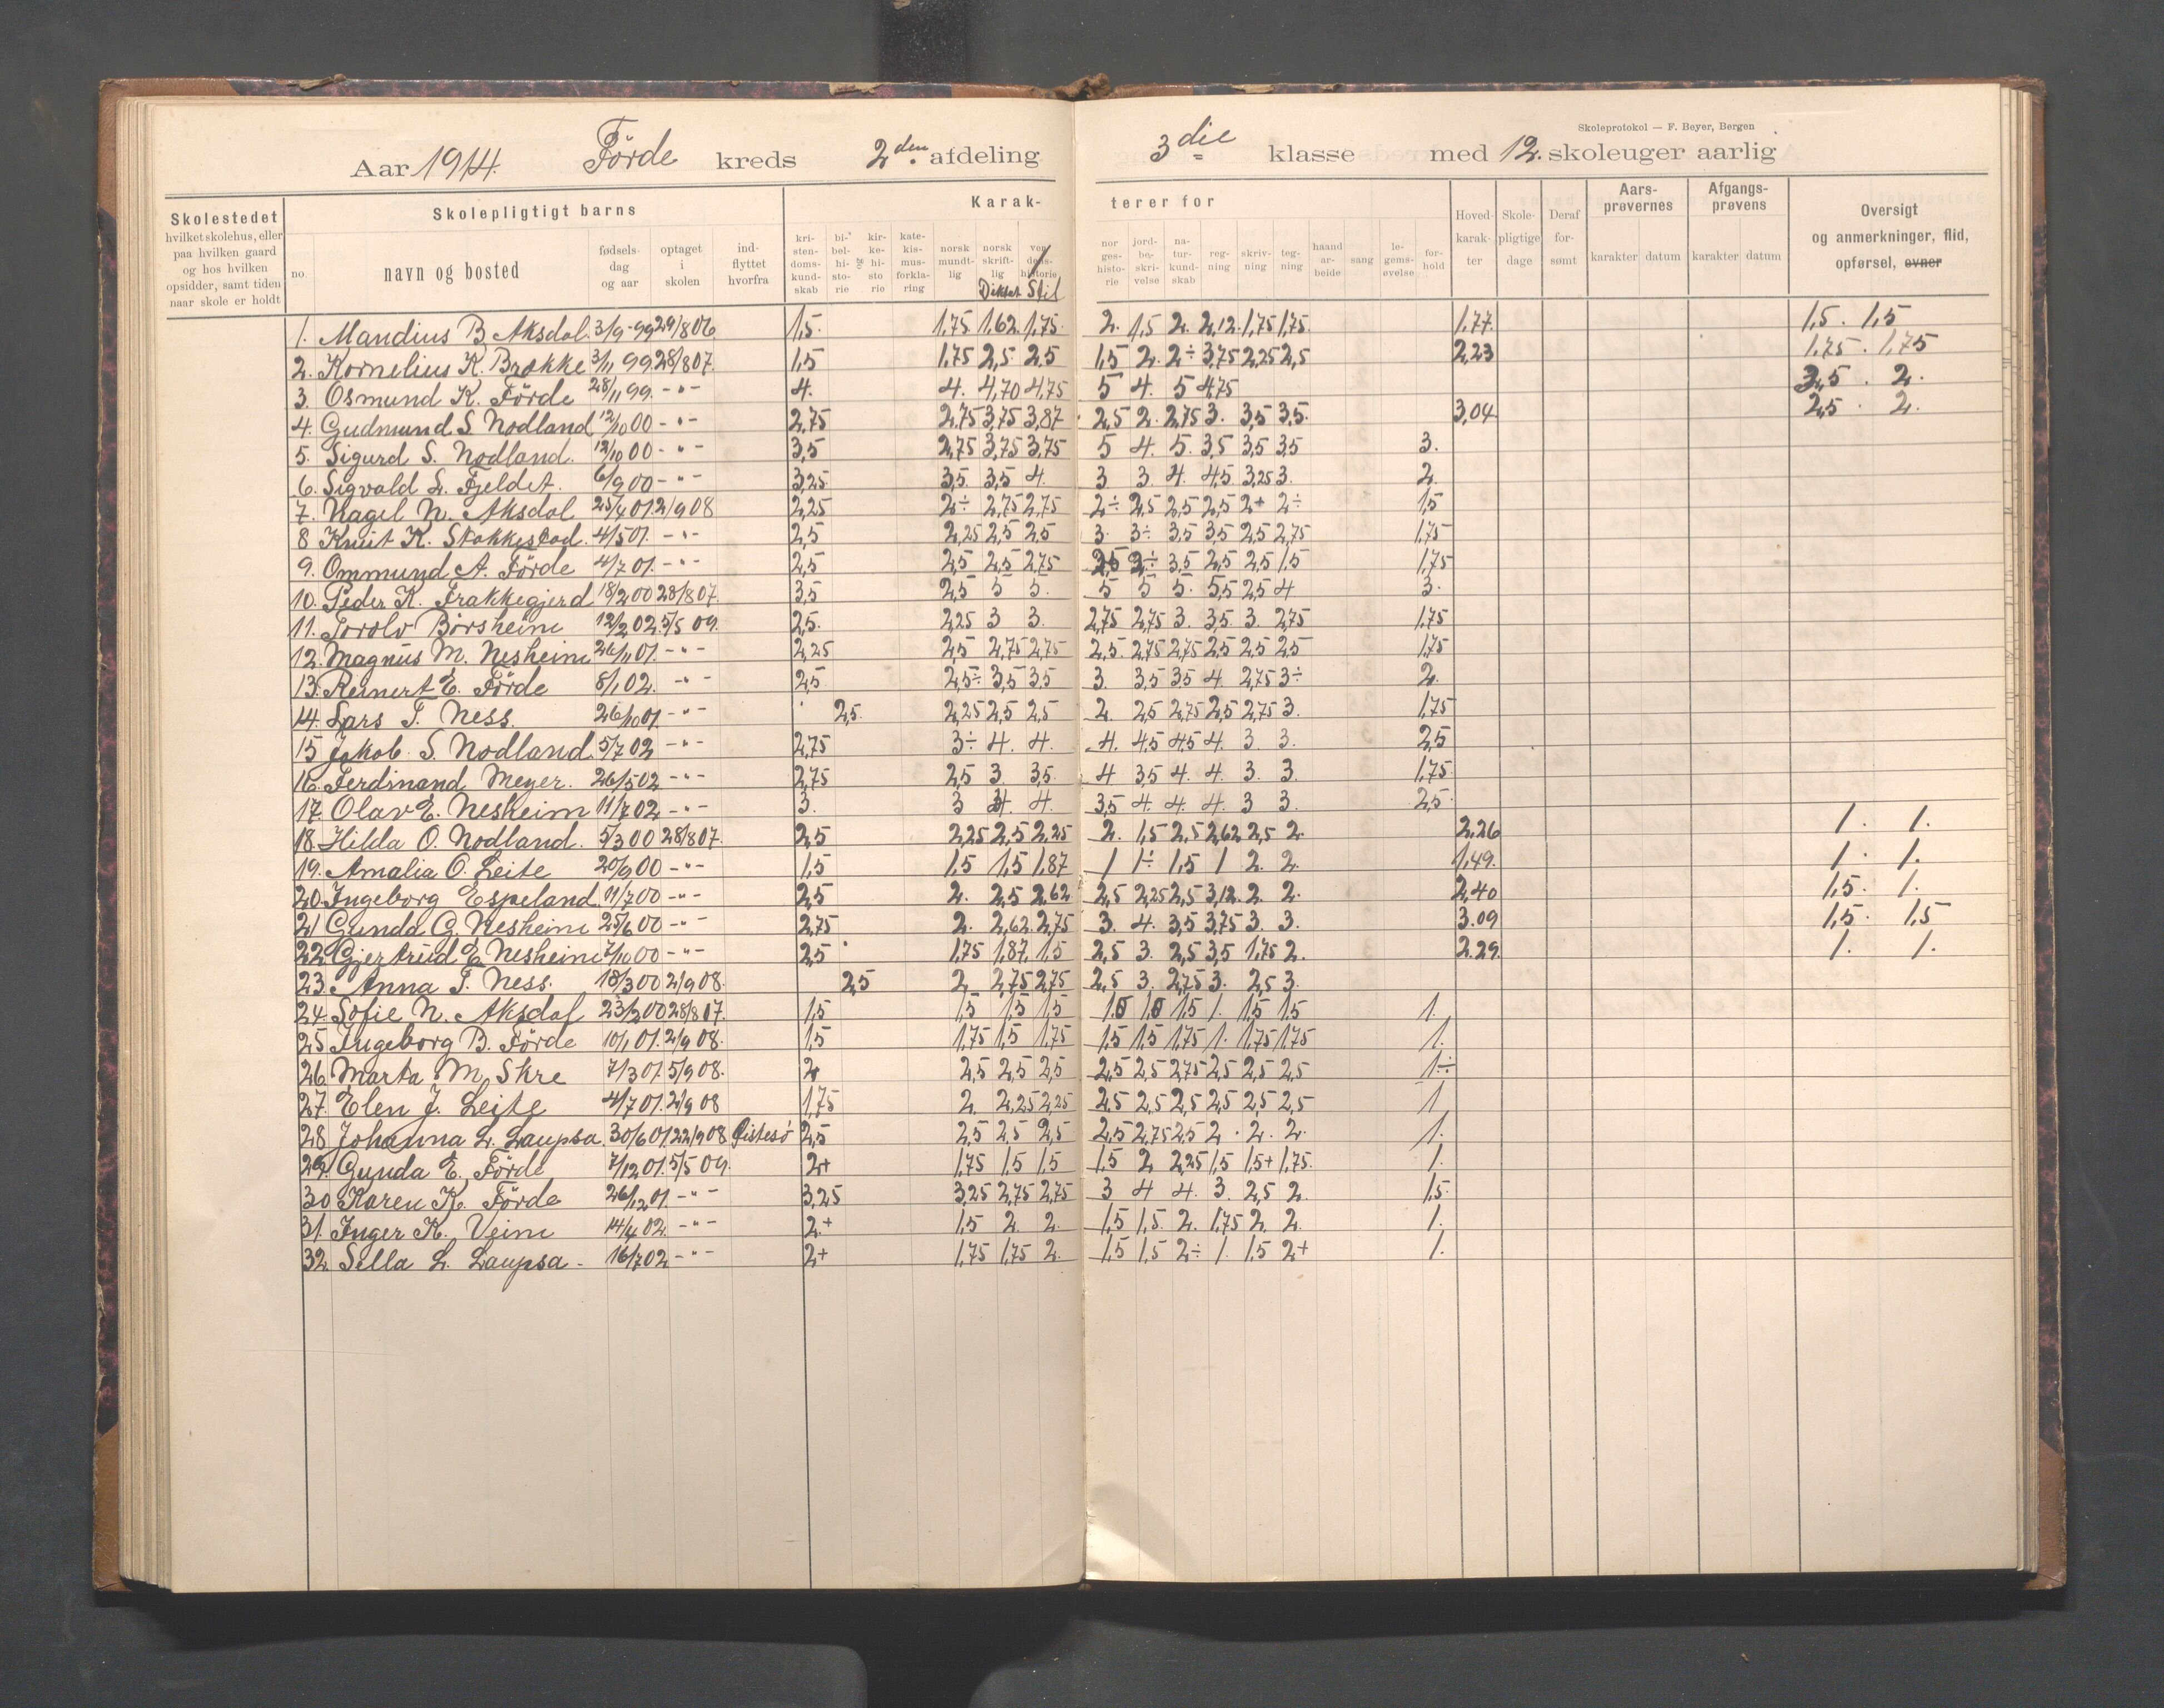 Skoleprotokol — F. Beyer, Bergen
Aar 1914. Förde kreds 2den afdeling 3die klasse med 12. skoleuger aarlig
Skolestedet hvilket skolehus, eller paa hvilken gaard og hos hvilken opsidder, samt tiden naar skole er holdt
Skolepligtigt barns
no. navn og bosted fødsels- dag og aar optaget i skolen ind- flyttet hvorfra
Karak- terer for
kri- sten- doms- kund- skab bi- bel- hi- sto- rie kir- ke- hi- sto rie kate- kis- mus- forkla- ring norsk mundt- lig norsk skrift- lig Diktat ver dens- historie Stil nor ges- histo- rie jord- be- skri- velse na- tur- kund- skab reg- ning skriv- ning teg- ning haand ar- beide sang le- gems- øvelse for- hold
Hoved- karak- ter Skole- pligtige dage Deraf for- sømt Aars- prøvernes karakter datum Afgangs- prøvens karakter datum Oversigt og anmerkninger, flid, opførsel, evner
1. Mandius B. Aksdal. 3/9-99 29/806. 1,5. 1,75 1,62. 1,75. 2. 1,5 2. 2,12. 1,75 1,75. 1,77. 1,5. 1,5
2. Kornelius K. Brakke 3/11 99 28/807. 1,5 1,75 2,5 2,5 1,5 2. 2÷ 3,75 2,25 2,5 2,23 1,75. 1,75
3. Osmund K. Förde 28/11 99. -"- 4. 4. 4,70 4,75 5 4. 5 4,75 3,5. 2.
4. Gudmund S Nodland 12/10 00 -"- 2,75 2,75 3,75 3,87 2,5 2. 2,75 3. 3,5 3,5. 3,04 2,5. 2.
5. Sigurd S. Nodland. 12/10 00 -"- 3,5 2,75 3,75 3,75 5 4. 5. 3,5 3,5 3,5 3.
6. Sigvald L. Fjeldet. 6/9 00 -"- 3,25 3,5. 3,5 4. 3 3. 4. 4,5 3,25 3. 2.
7. Nagel N. Aksdal 25/4 01 2/9 08 2,25 2÷ 2,75 2,75 2÷ 2,5 2,5 2,5 2+ 2÷ 1,5
8 Knut K. Stakkestad. 4/5 01. -"- 2,5 2,25 2,5 2,5 3. 3÷ 3,5 3,5 2,5 2,75 1,75
9. Ommund A. Förde 4/7 01. -"- 2,5 2,5 2,5 2,75 3,5 2,5 2,5 1,5 1,75
10. Peder K. Frakkegjerd 18/2 00 28/807. 3,5 2,5 5 5. 5 5 5. 5,5 2,5 4 3.
11. Torolv Börsheim 12/2 02. 5/5 09. 2,5. 2,25 3 3. 2,75 2,75 3. 3,5. 3. 2,75 1,75
12. Magnus M. Nesheim 26/11 01. -"- 2,25 2,5 2,75 2,75 2,5. 2,75 2,75 2,5 2,5 2,5 1,75
13. Reinert E. Förde 8/1 02. -"- 2,5 2,5÷ 3,5 3,5 3. 3,5 3,5 4. 2,75 3÷ 2.
14. Lars T. Ness. 26/10 01. -"- 2,5. 2,25 2,5 2,5 2. 2,5 2,75 2,5 2,75 3. 1,75
15 Jakob S. Nodland. 5/7 02 -"- 2,75 3÷ 4. 4. 4. 4,5 4,5 4. 3. 3. 2,5
16. Ferdinand Meyer. 26/5 02 -"- 2,75 2,5 3. 3,5. 4 3,5 4. 4. 3. 3. 1,75
17. Olav E. Nesheim 11/7 02 -"- 3. 3 4. 4. 3,5 4. 4. 4. 3 3. 2,5.
18. Hilda O. Nodland. 5/3 00 28/807. 2,5 2,25 2,5 2,25 2. 1,5 2,5 2,62 2,5 2. 2,26 1. 1.
19. Amalia O. Leite 20/9 00 -"- 1,5 1,5 1,5 1,87 1 1÷ 1,5 1 2. 2. 1,49. 1. 1.
20. Ingeborg Espeland. 11/7 00 -"- 2,5 2. 2,5 2,62 2,5 2,25 2,5 3,12. 2. 2. 2,40 1,5. 1.
21 Gunda G. Nesheim 25/6 00 -"- 2,75 2. 2,62. 2,75 3. 4. 3,5 3,75 3. 3. 3.09 1,5. 1,5
22. Gjertrud E. Nesheim 7/10 00 -"- 2,5 1,75 1,87. 1,5 2,5 3. 2,5 3,5 1,75 2. 2.29. 1. 1.
23. Anna T. Ness. 18/3 00 2/9 08. 2,5 2 2,75 2,75 2,5 3. 2,75 3. 2,5 3.
24. Sofie N. Aksdal 23/2 00 28/8 07. 1,5 1,5 1,5 1,5 1.5 1,5 1,5 1. 1,5 1,5 1.
25 Ingeborg B. Förde 10/1 01. 2/9 08. 1,5 1,75 1,5 1,75 1,5 1,5 1,75 1. 1,75 1,75 1.
26. Marta M. Skre 7/3 01. 5/9 08. 2 2,5 2,5 2,5 2,5 2,5 2,75 2,5 2,5 2,5 1÷
27. Elen J. Leite 4/7 01. 2/9 08 1,75 2. 2,25 2,25 2,5 2,5 2,5 2,5 2,5 2,5 1
28 Johanna L. Laupsa. 30/6 01. 22/9 08 2,5 2,5 2,5 2,5 2,5 2,75 2,5 2. 2. 2. 1.
29. Gunda E. Förde 7/12 01. 5/5 09. 2+ 1,75 1,5 1,5 1,5 2 2,25 1,5 1,5+ 1,75. 1.
30 Karen K. Förde 26/12 01. -"- 3,25 3,25 2,75 2,75 3 4 4. 3. 2,5 2. 1,5.
31. Inger K. Veim 14/4 02. -"- 2.+ 1,5 2. 2. 1,5 1,5. 2. 1,75 2. 2. 1.
32 Sella L. Laupsa - 16/7 02 -"- 2+ 1,75 1,75 2. 1,5 1,5 2÷ 1. 1,5 2+ 1.